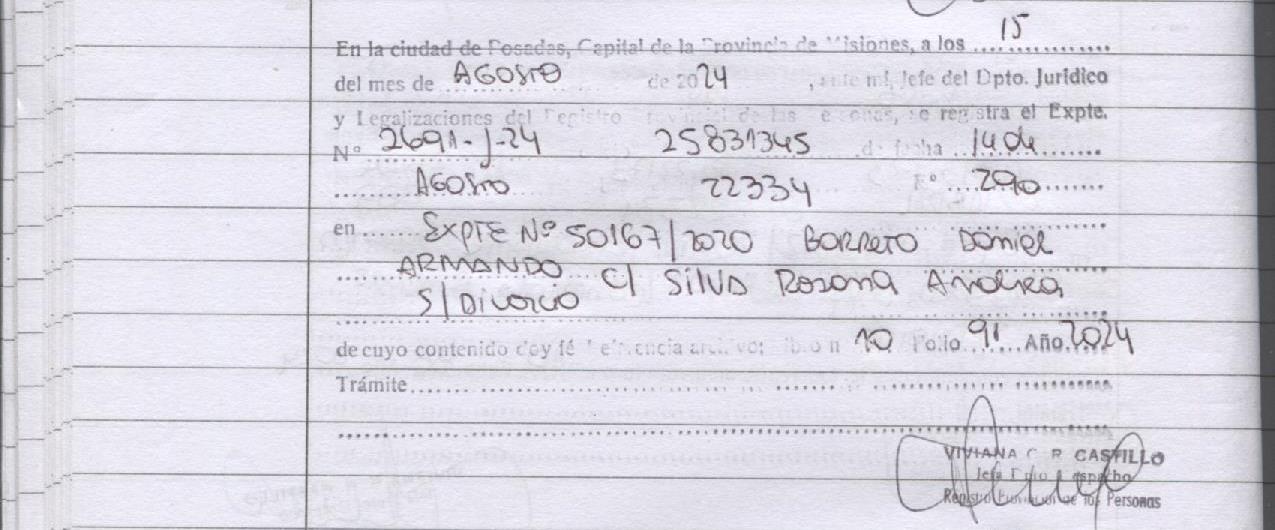 En la ciudad de Posadas, Capital de la Provincia de Misiones, a los 15
del mes de AGOSTO de 2024, ante mí, Jefe del Dpto. Jurídico
y Legalizaciones del Registro Provincial de las Personas, se registra el Expte.
N° 2691-J-24 25831345 de fecha 14 de
AGOSTO 22334 F° 290
en EXPTE Nº 50167/2020 BORRETO DANIEL
ARMANDO C/ SILVA ROSANA ANDREA
S/DIVORCIO
de cuyo contenido doy fé 10 Folio 91 Año 2024
Trámite
VIVIANA C. R. CASTILLO
Jefa Dpto Despacho
Registro Provincial de las Personas